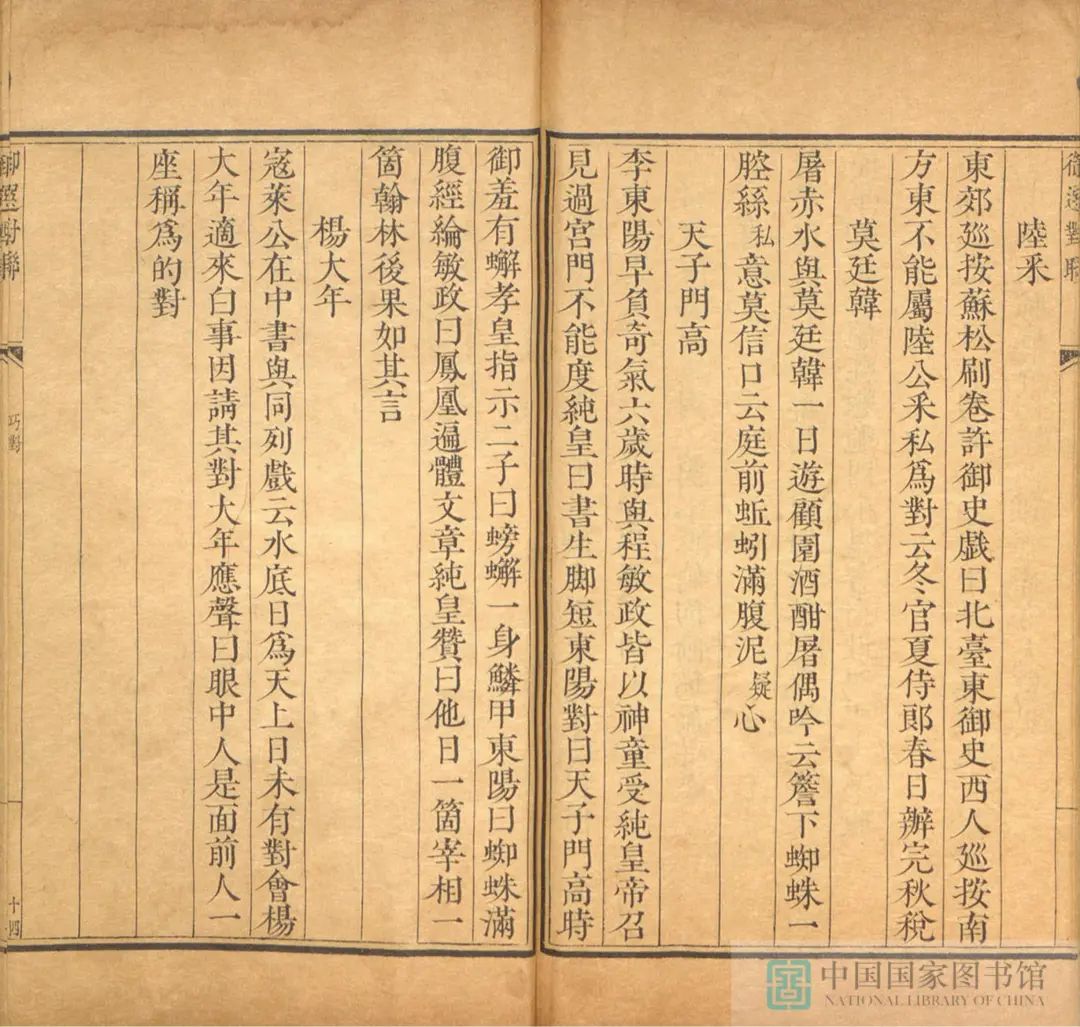 陸釆
東郊廵按蘇松刷卷許御史戲曰北臺東御史西人廵按南
方東不能屬陸公釆私爲對云冬官夏侍郎春日辦完秋稅
莫廷韓
屠赤水與莫廷韓一日遊顧園酒酣屠偶吟云簷下蜘蛛一
腔絲私意莫信口云庭前蚯蚓滿腹泥疑心
天子門高
李東陽早負奇氣六歲時與程敏政皆以神童受純皇帝召
見過宮門不能度純皇曰書生脚短東陽對曰天子門高時
御羞有蠏孝皇指示二子曰螃蠏一身鱗甲東陽曰蜘蛛滿
腹經綸敏政曰鳳凰遍體文章純皇贊曰他日一箇宰相一
箇翰林後果如其言
楊大年
寇萊公在中書與同列戲云水底日爲天上日未有對會楊
大年適來白事因請其對大年應聲曰眼中人是面前人一
座稱爲的對
御選對聯
巧對
十四
中国国家图书馆
NATIONAL LIBRARY OF CHINA